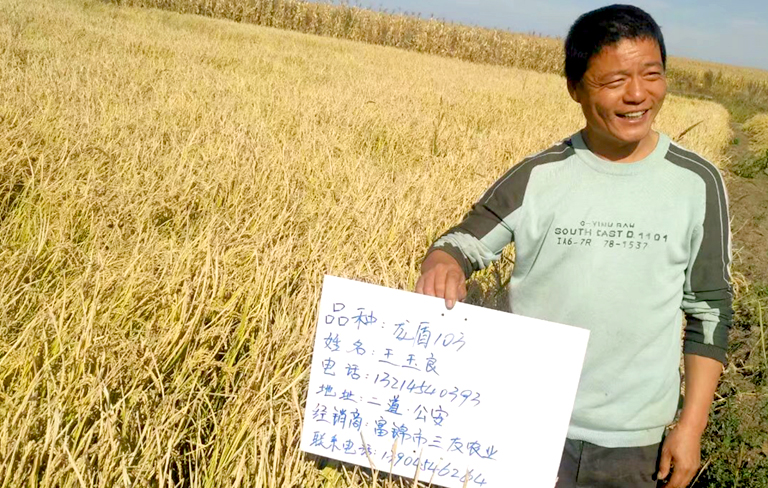 O-YINU RAW
SOUTH EAST D.1101
IA6-7R 78-1537
品种:龙盾103
姓名:王玉良
电话:13214540393
地址:二道·公安
经销商:富锦市三友农业
联系电话: